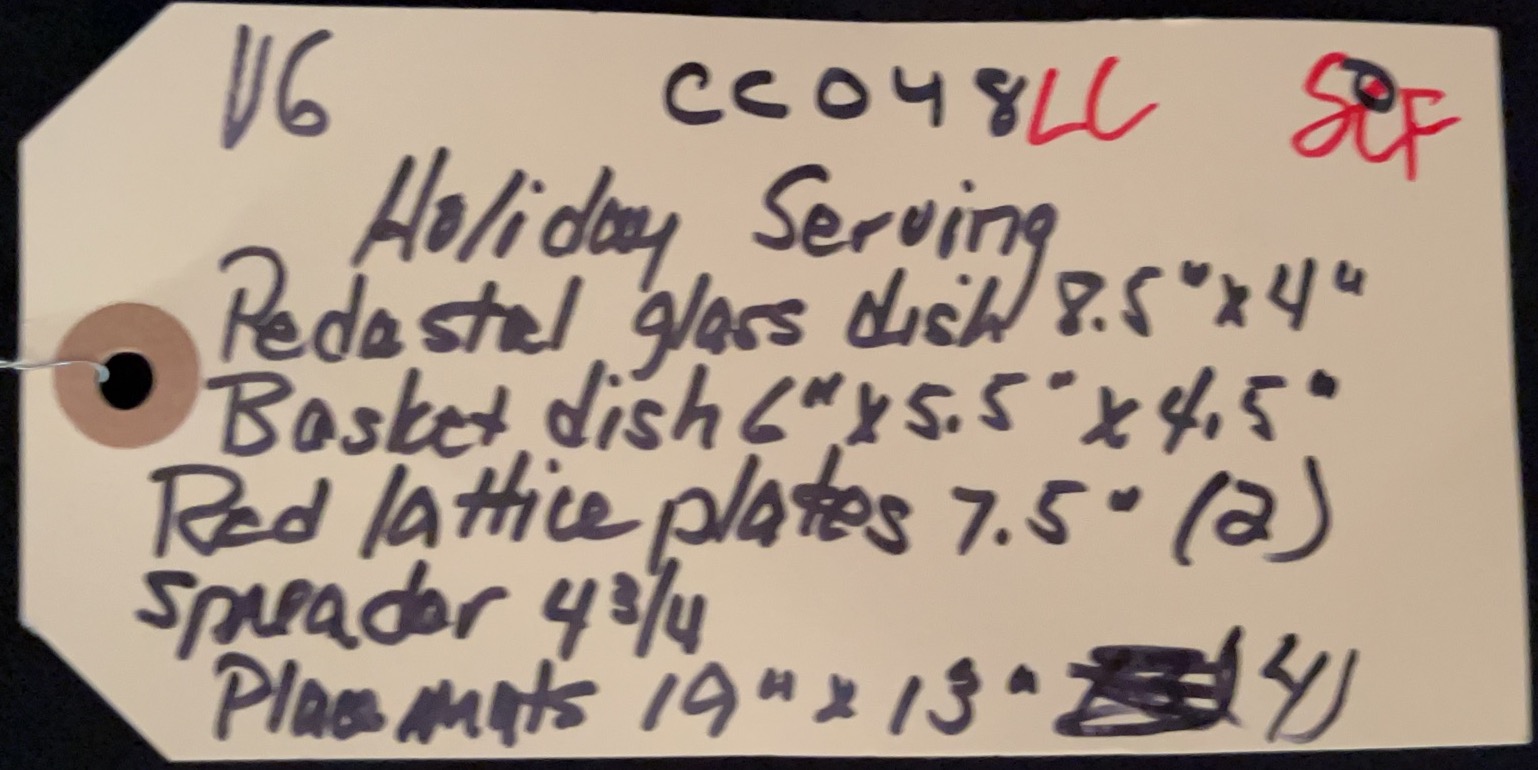 V6 CC048LC SCF
Holiday Serving
Pedastal glass dish 8.5" x 4"
Basket dish 6" x 5.5" x 4.5"
Red lattice plates 7.5" (2)
Spreader 4 3/4
Placemats 19" x 13" (4)